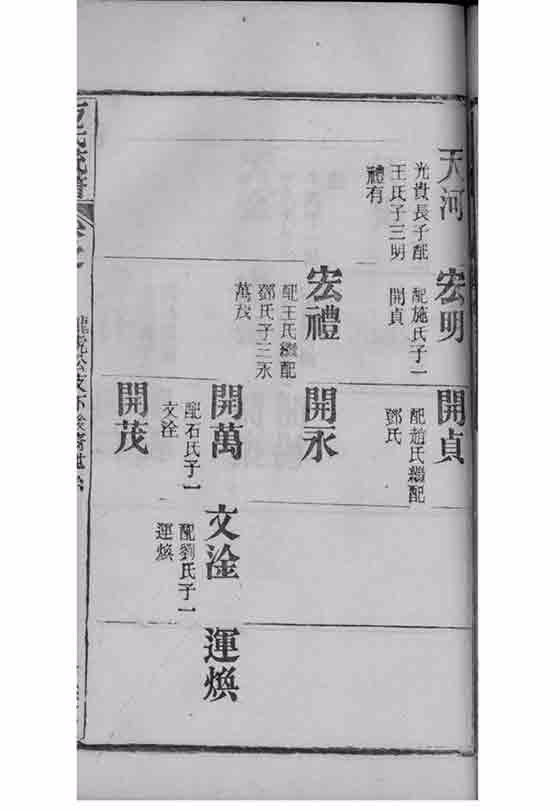 天河
光貴長子配
王氏子三明
禮有
宏明
配施氏子一
開貞
開貞
配趙氏繼配
鄧氏
宏禮
配王氏繼配
鄧氏子三永
萬茂
開永
開萬
配石氏子一
文淦
文淦
配劉氏子一
運煥
運煥
開茂
氏